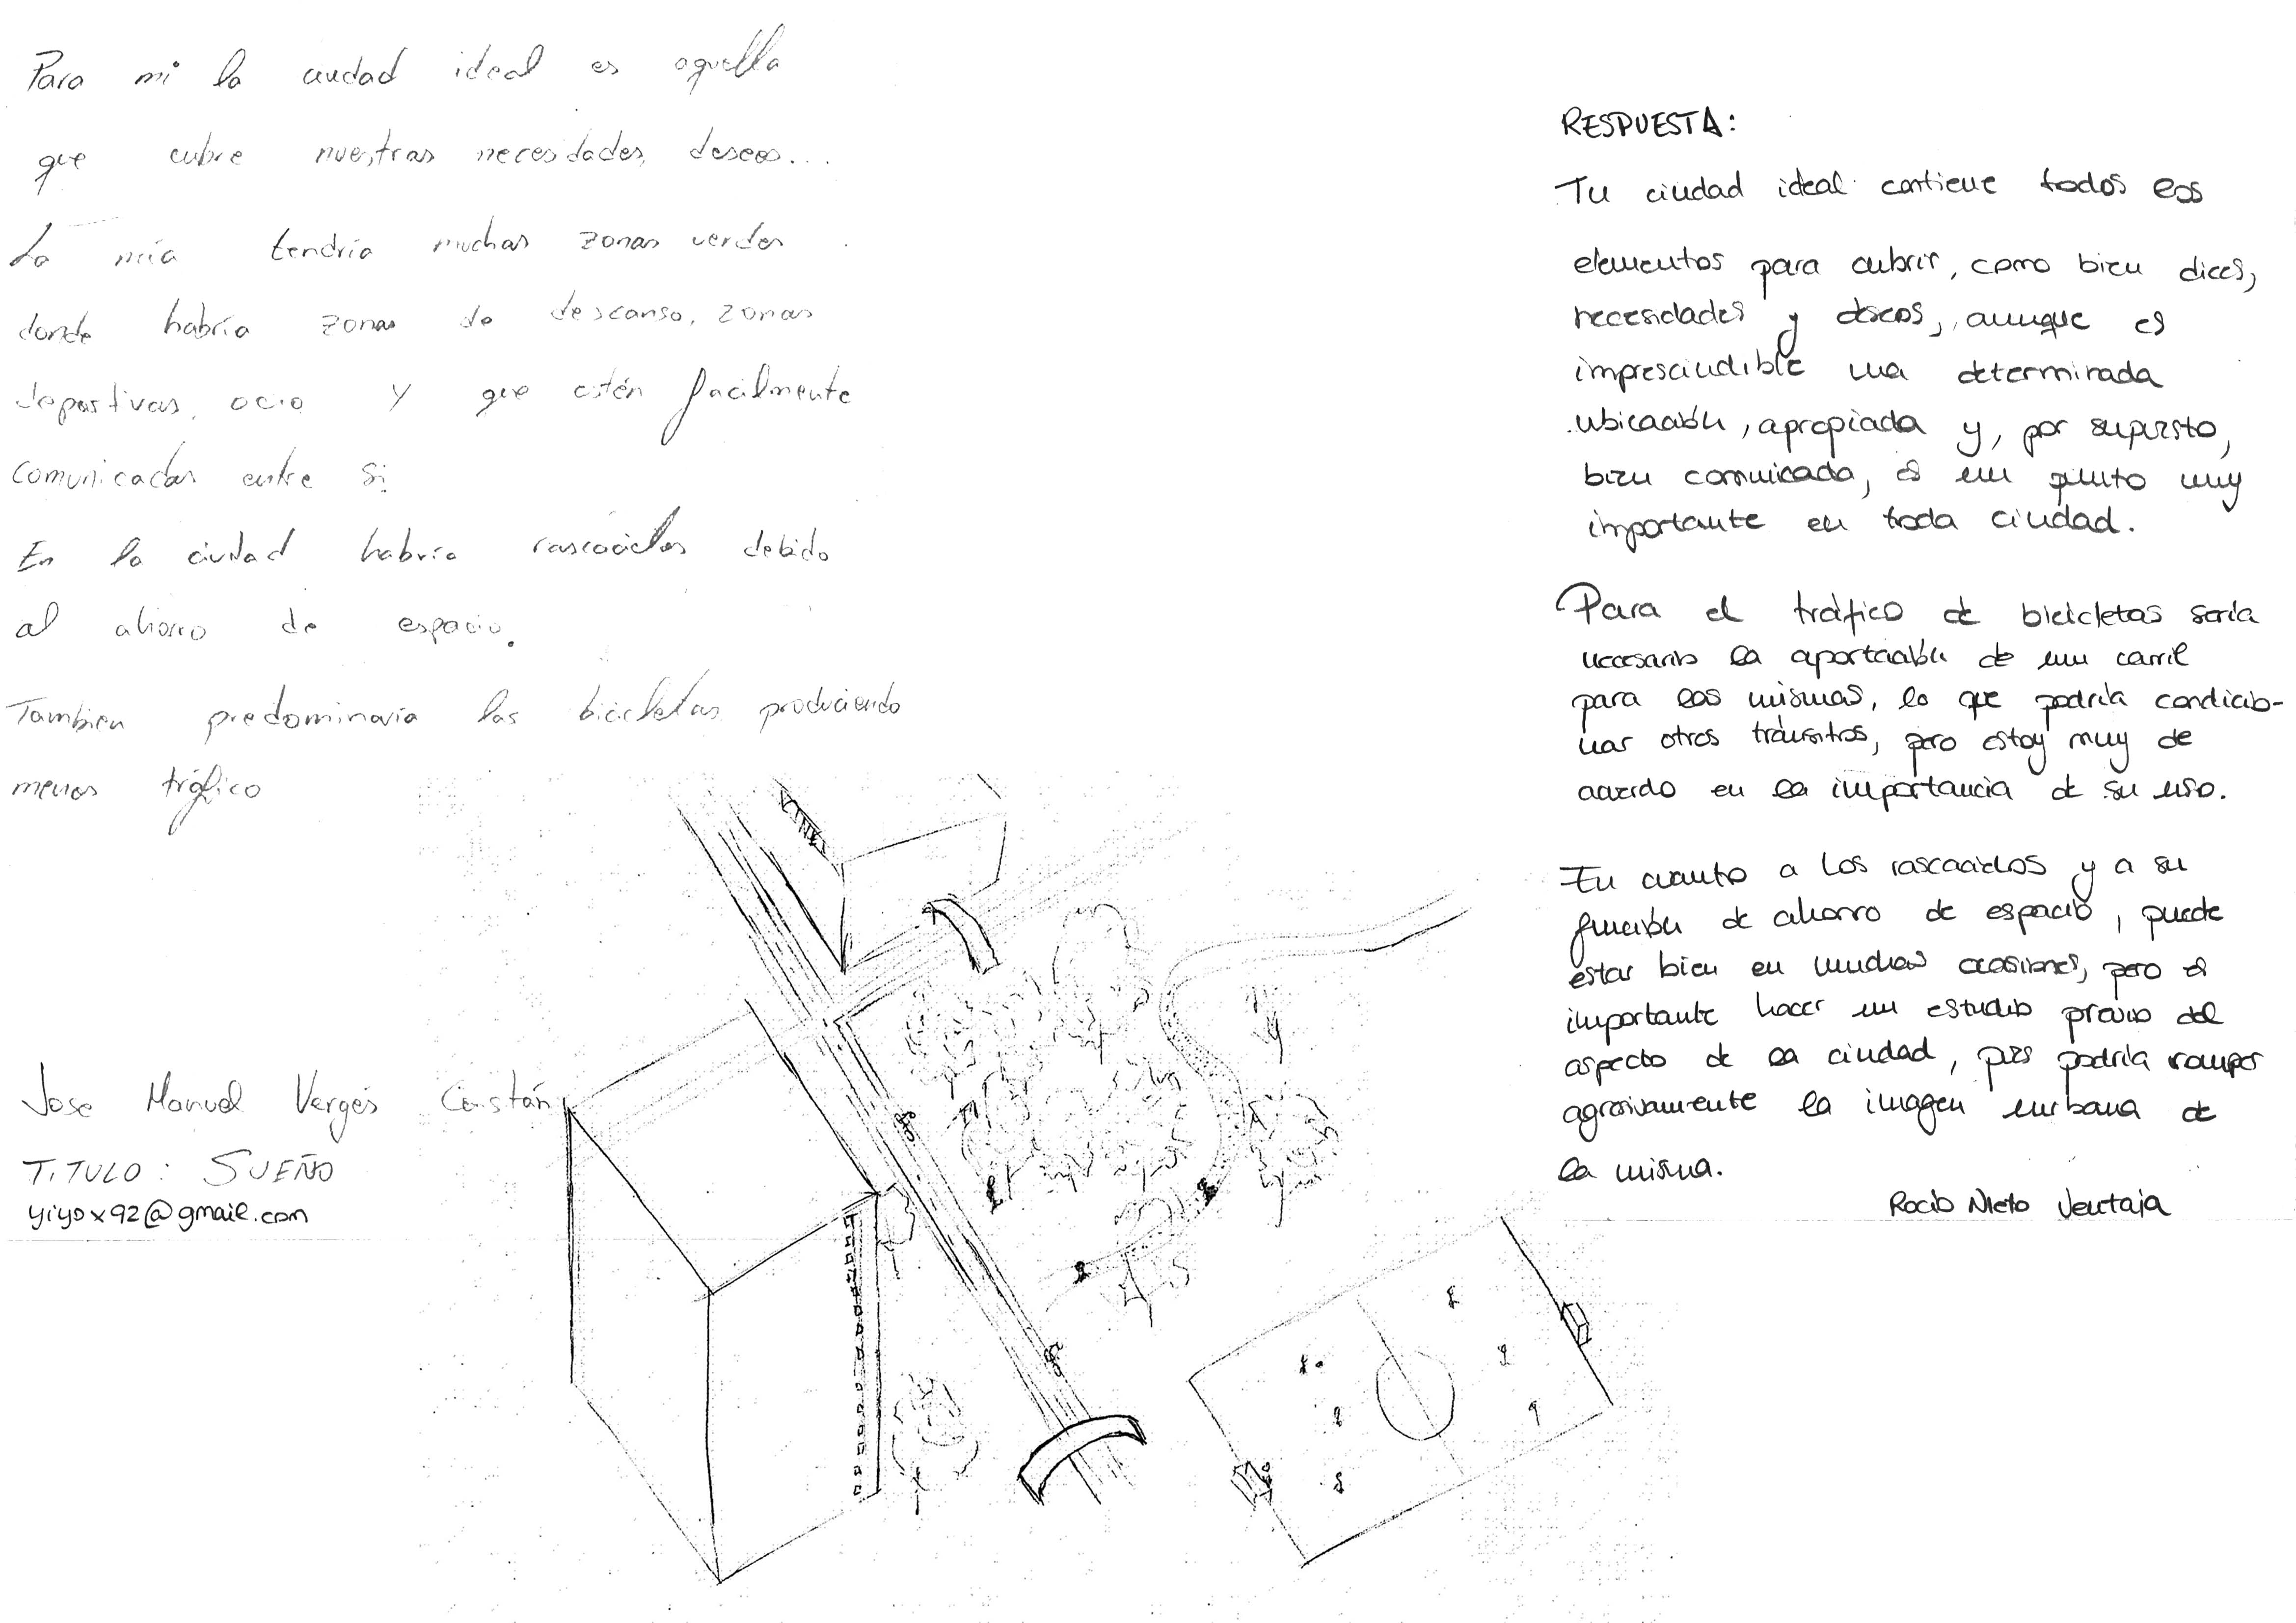 Para mi la ciudad ideal es aquella
que cubre nuestras necesidades, deseos...
La mía tendría muchas zonas verdes
donde habría zonas de descanso, zonas
deportivas, ocio y que estén facilmente
comunicadas entre si
En la ciudad habría rascacielos debido
al ahorro de espacio.
Tambien predominaría las bicicletas produciendo
menos tráfico
Jose Manuel Vergés Constán
TITULO: SUEÑO
yiyox92@gmail.com
RESPUESTA:
Tu ciudad ideal contiene todos esos
elementos para cubrir, como bien dices,
necesidades y deseos, aunque es
imprescindible una determinada
ubicación, apropiada y, por supuesto,
bien comunicada, es un punto muy
importante en toda ciudad.
Para el tráfico de bicicletas sería
necesario la aportación de un carril
para las mismas, lo que podría condicio-
nar otros tránsitos, pero estoy muy de
acuerdo en la importancia de su uso.
En cuanto a los rascacielos y a su
función de ahorro de espacio, puede
estar bien en muchas ocasiones, pero es
importante hacer un estudio previo del
aspecto de la ciudad, pues podría romper
agresivamente la imagen urbana de
la misma.
Rocío Nieto Ventaja